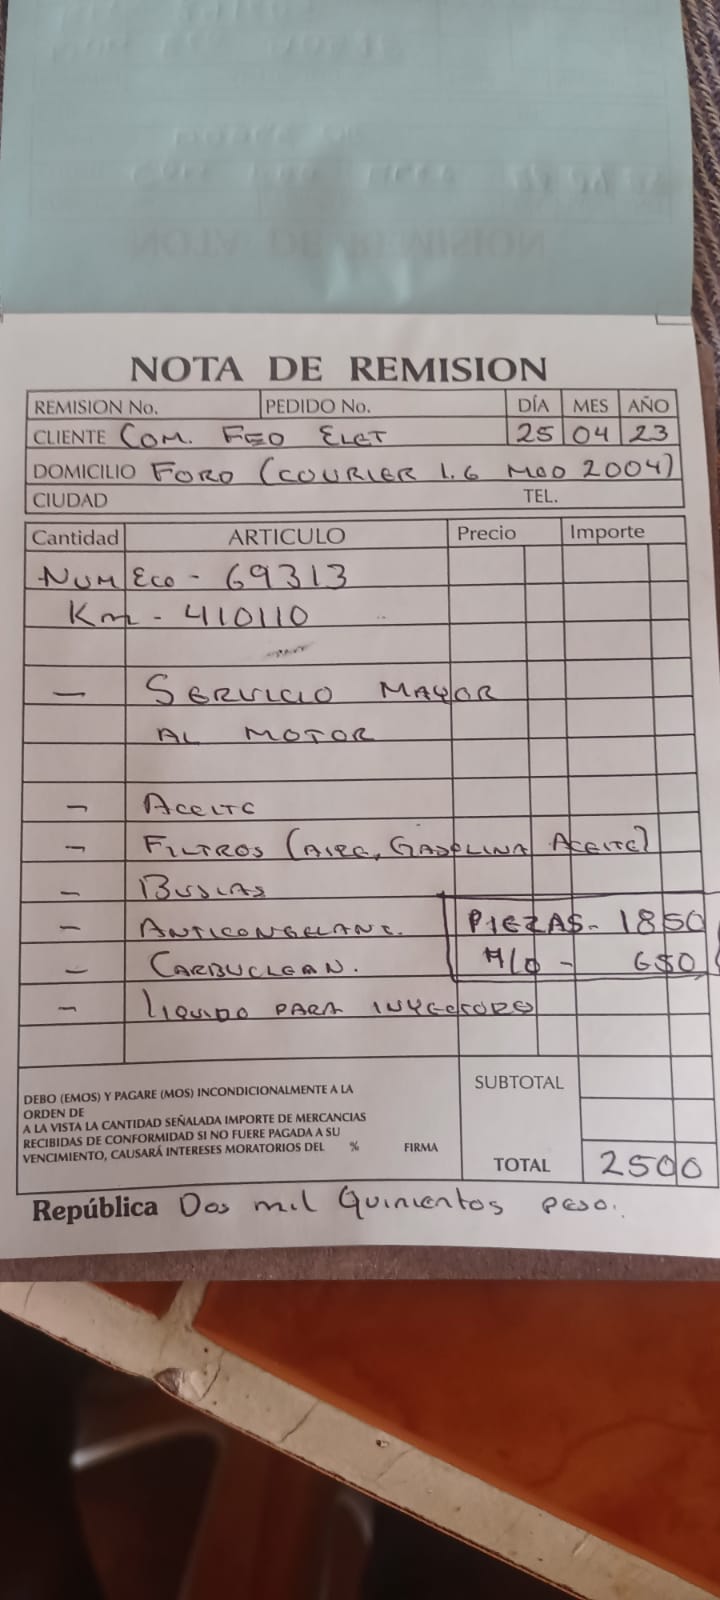 NOTA DE REMISION
REMISION No. PEDIDO No. DÍA MES AÑO
CLIENTE COM. FEO ELET 25 04 23
DOMICILIO FORD (COURIER 1.6 MOD 2004)
CIUDAD TEL.
Cantidad ARTICULO Precio Importe
NUM ECO - 69313
Km - 410110
— SERVICIO MAYOR
AL MOTOR
— ACEITE
— FILTROS (AIRE, GASOLINA ACEITE)
— BUJIAS
— ANTICONGELANT. PIEZAS - 1850
— CARBUCLEAN. M/O - 650
— LIQUIDO PARA INYECTORES
DEBO (EMOS) Y PAGARE (MOS) INCONDICIONALMENTE A LA
ORDEN DE
A LA VISTA LA CANTIDAD SEÑALADA IMPORTE DE MERCANCIAS
RECIBIDAS DE CONFORMIDAD SI NO FUERE PAGADA A SU
VENCIMIENTO, CAUSARÁ INTERESES MORATORIOS DEL % FIRMA
SUBTOTAL
TOTAL 2500
República Dos mil Quinientos peso.